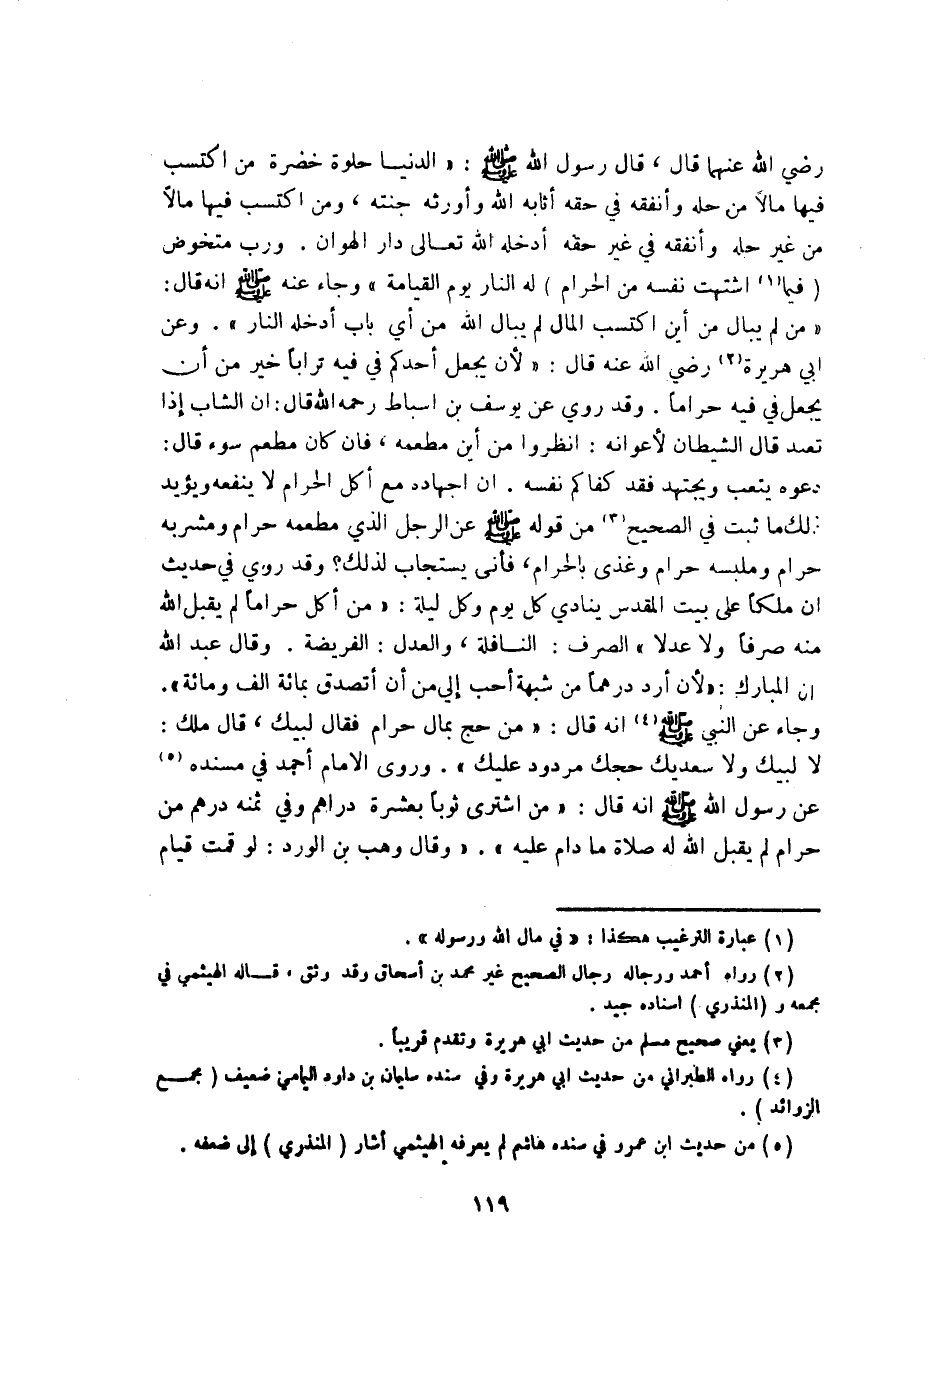 رضي الله عنها قال ، قال رسول الله ﷺ : « الدنيـا حلوة خضرة من اكتسب
فيها مالاً من حله وأنفقه في حقه أثابه الله وأورثه جنته ، ومن اكتسب فيها مالاً
من غير حله وأنفقه في غير حقه أدخله الله تعـالى دار الهوان . ورب متخوض
( فيما(١) اشتهت نفسه من الحرام ) له النار يوم القيامة » وجاء عنه ﷺ انه قال :
« من لم يبال من أين اكتسب المال لم يبال الله من أي باب أدخله النار » . وعن
ابي هريرة(٢) رضي الله عنه قال : « لأن يجعل أحدكم في فيه تراباً خير من أن
يجعل في فيه حراماً . وقد روي عن يوسف بن اسباط رحمه الله قال : ان الشاب إذا
تعبد قال الشيطان لأعوانه : انظروا من أين مطعمه ، فان كان مطعم سوء قال :
دعوه يتعب ويجتهد فقد كفاكم نفسه . ان اجهاده مع أكل الحرام لا ينفعه ويؤيد
ذلك ما ثبت في الصحيح(٣) من قوله ﷺ عن الرجل الذي مطعمه حرام ومشربه
حرام وملبسه حرام وغذى بالحرام ، فأنى يستجاب لذلك؟ وقد روي في حديث
ان ملكاً على بيت المقدس ينادي كل يوم وكل ليلة : « من أكل حراماً لم يقبل الله
منه صرفاً ولا عدلا » الصرف : النـافلة ، والعدل : الفريضة . وقال عبد الله
ان المبارك : « لأن أرد درهماً من شبهة أحب إلي من أن أتصدق بمائة الف ومائة » .
وجاء عن النبي ﷺ(٤) انه قال : « من حج بمال حرام فقال لبيك ، قال ملك :
لا لبيك ولا سعديك حجك مردود عليك » . وروى الامام أحمد في مسنده (٥)
عن رسول الله ﷺ انه قال : « من اشترى ثوباً بعشرة دراهم وفي ثمنه درهم من
حرام لم يقبل الله له صلاة ما دام عليه » . « وقال وهب بن الورد : لو قمت قيام
(١) عبارة الترغيب هكذا : « في مال الله ورسوله » .
(٢) رواه أحمد ورجاله رجال الصحيح غير محمد بن أسحاق وقد وثق ، قـاله الهيثمي في
مجمعه و (المنذري ) اسناده جيد .
(٣) يعني صحيح مسلم من حديث ابي هريرة وتقدم قريباً .
(٤) رواه الطبراني من حديث ابي هريرة وفي سنده سليمان بن داود اليامي ضعيف ( مجمـع
الزوائد ) .
(٥) من حديث ابن عمرو في سنده هاشم لم يعرفه الهيثمي أشار ( المنذري ) إلى ضعفه .
١١٩